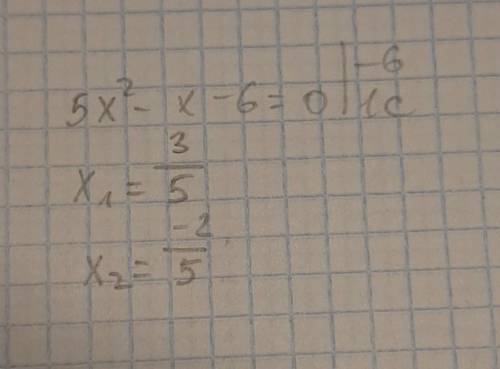 5x² - x - 6 = 0 | -6
x₁ = 3/5
x₂ = -2/5